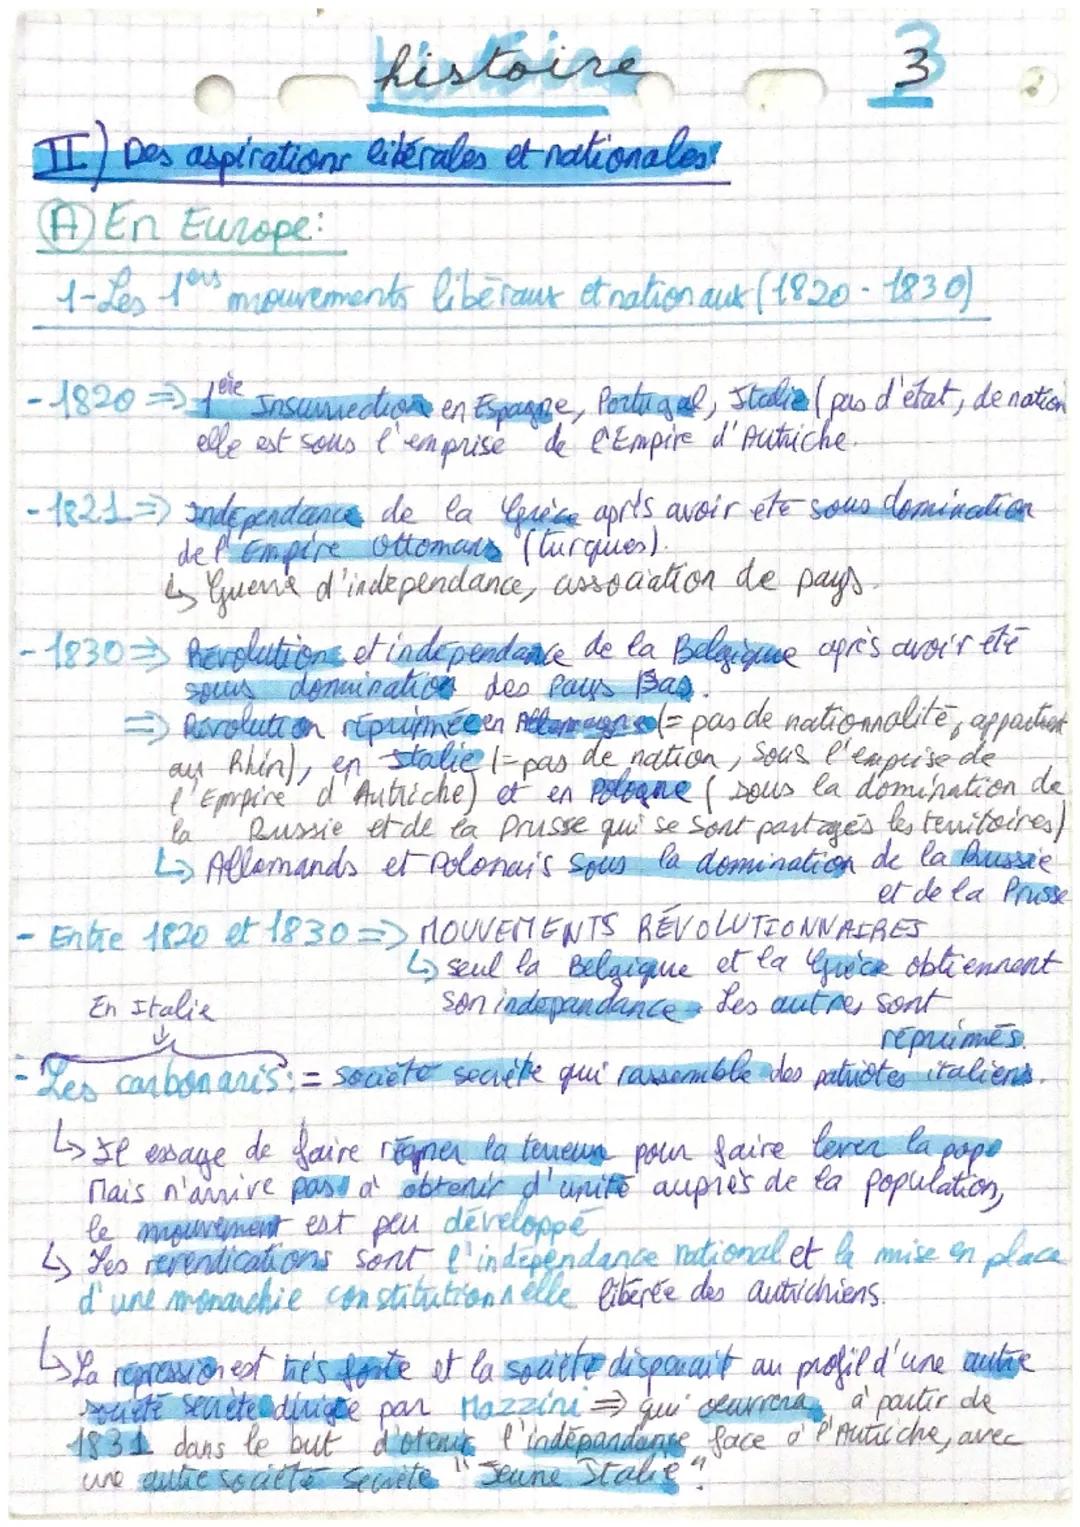 histoire
3
II) Des aspirations libérales et nationales:
A En Europe:
1-Les 1ers mouvements libéraux et nationaux (1820 - 1830)
- 1820 => 1ère Insurrection en Espagne, Portugal, Italie (pas d'état, de nation
elle est sous l'emprise de l'Empire d'Autriche.
- 1821 => Indépendance de la Grèce après avoir été sous domination
de l'Empire Ottomans (turques).
↳ Guerre d'indépendance, association de pays.
- 1830 => Révolutions et indépendance de la Belgique après avoir été
sous domination des Pays Bas.
=> Révolution réprimée en Allemagne (= pas de nationnalité, appartient
au Rhin), en Italie (= pas de nation, sous l'emprise de
l'Empire d'Autriche) et en Pologne (sous la domination de
la Russie et de la Prusse qui se sont partagés les territoires)
↳ Allemands et Polonais sous la domination de la Russie
et de la Prusse
- Entre 1820 et 1830 => MOUVEMENTS RÉVOLUTIONNAIRES
↳ seul la Belgique et la Grèce obtiennent
son indépendance. Les autres sont
réprimés.
En Italie
- Les carbonaris: = société secrète qui rassemble des patriotes italiens.
↳ Il essaye de faire régner la terreur pour faire lever la pope
Mais n'arrive pas à obtenir d'unité auprès de la population,
le mouvement est peu développé
↳ Les revendications sont l'indépendance national et la mise en place
d'une monarchie constitutionnelle libérée des autrichiens.
↳ La répression est très forte et la société disparait au profil d'une autre
société secrète dirigée par Mazzini => qui oeuvrera à partir de
1831 dans le but d'otenir l'indépandance face à l'Autriche, avec
une autre société secrète "Jeune Italie".